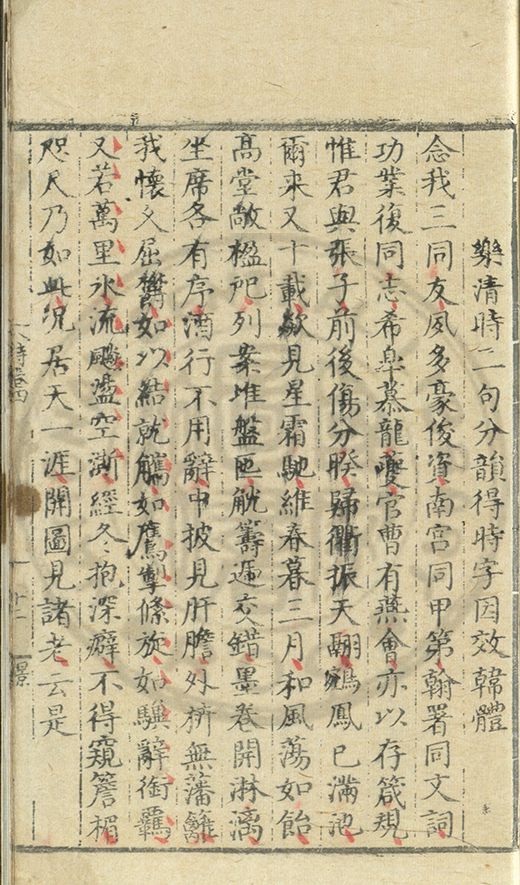 樂清時二句分韻得時字因效韓體
念我三同友夙多豪俊資南宮同甲第翰署同文詞
功業復同志希皐慕龍夔官曹有燕會亦以存箴規
惟君與張子前後傷分暌歸衢振天翮鵷鳳已滿池
爾來又十載欻見星霜馳維春暮三月和風蕩如飴
高堂敞楹戺列案堆盤匜觥籌遞交錯墨卷開淋漓
坐席各有序酒行不用辭中披見肝膽外擠無藩籬
我懷久屈鬱如以結就觿如鷹掣絛旋如驥辭銜羈
又若萬里水流颷盪空澌經冬抱深癖不得窺簷楣
咫尺乃如此況居天一涯開圖見諸老云是